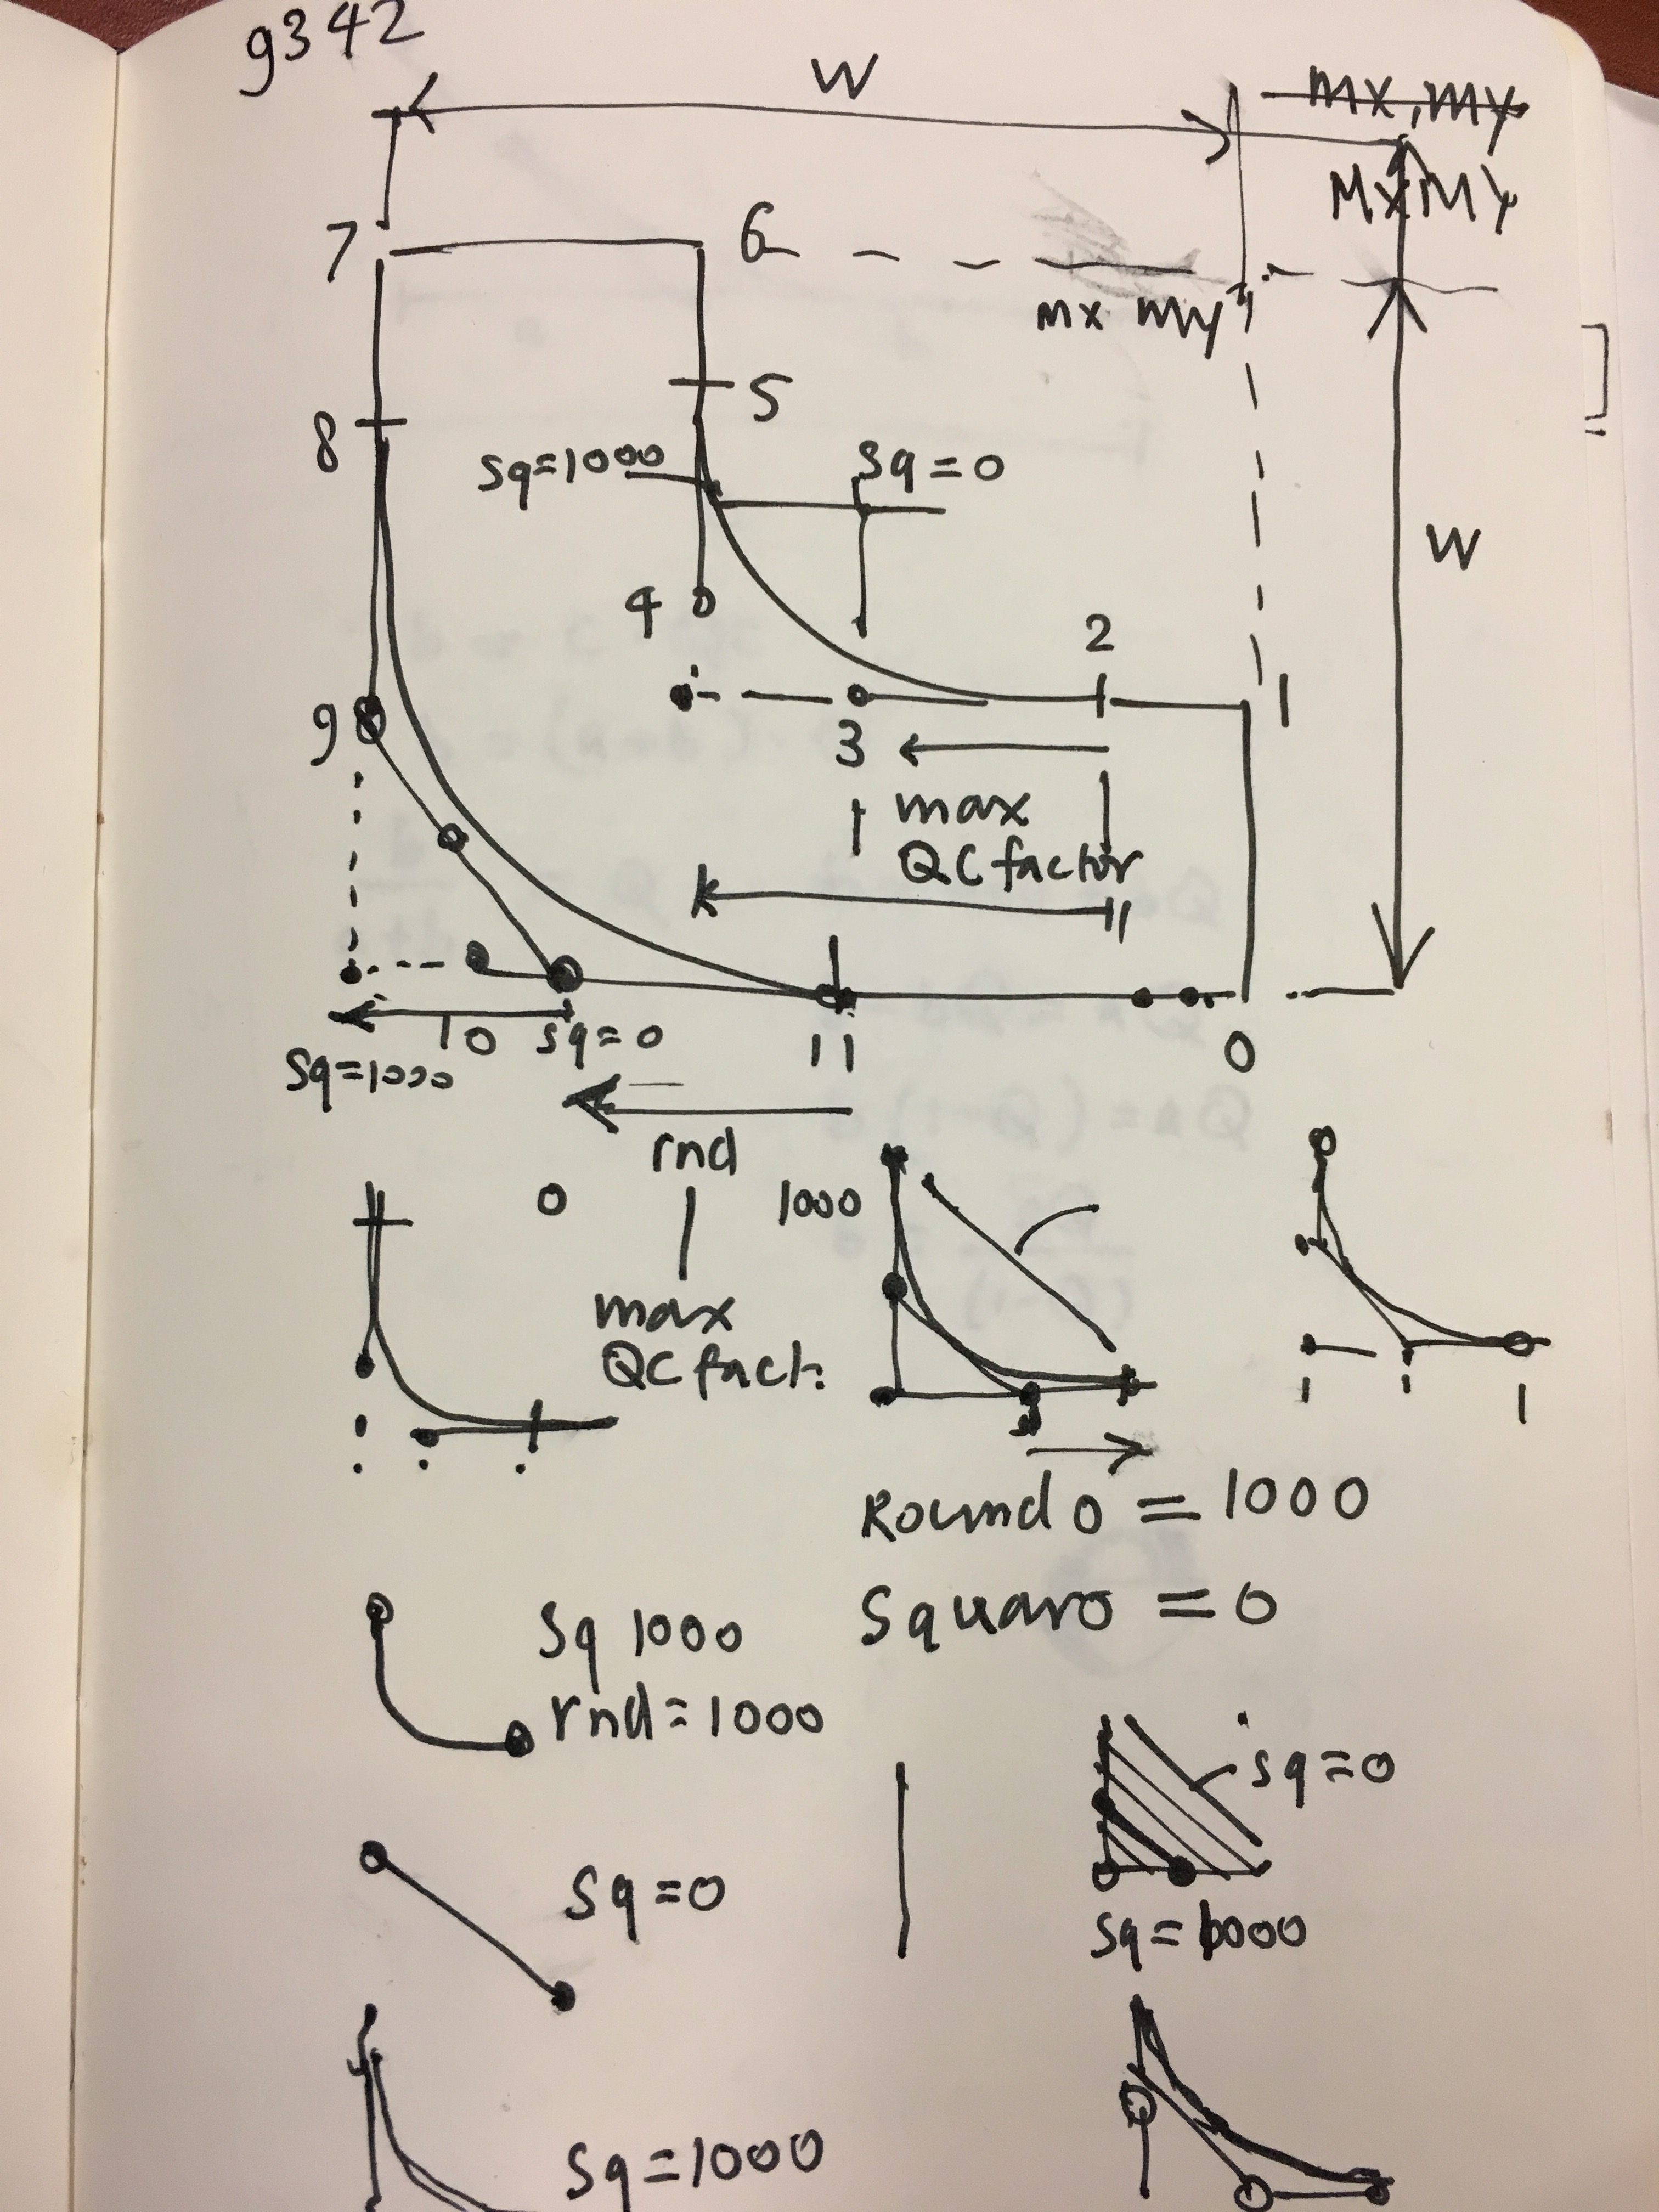 g342
W
mx, my
Mx My
7
6
mx my
5
8
Sq=1000
Sq=0
W
4
2
9
3
1
max
QC factor
10
Sq=0
11
0
Sq=1000
rnd
0
1000
max
QC fact.
Round 0 = 1000
Square = 0
Sq 1000
rnd=1000
Sq=0
Sq=0
Sq=1000
Sq=1000